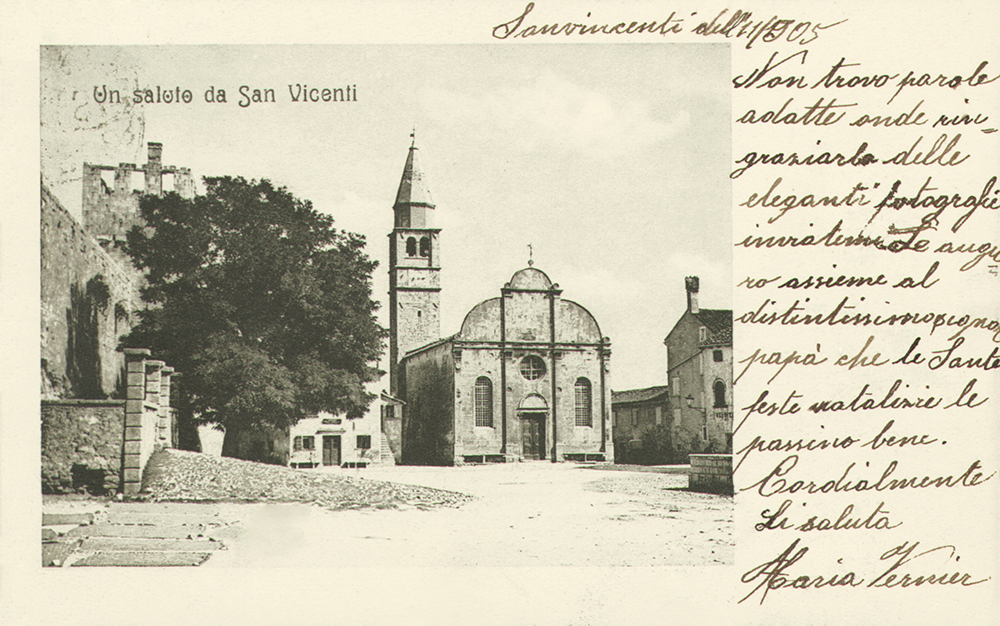 Sanvincenti dell'11/905
Un saluto da San Vicenti
Non trovo parole
adatte onde rin-
graziarla delle
eleganti fotografie
inviatemi Le augu
ro assieme al
distintissimo signor
papà che le Sante
feste natalizie le
passino bene.
Cordialmente
Li saluta
Maria Vernier